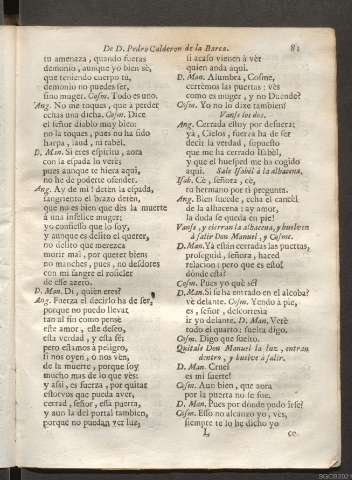 De D. Pedro Calderon de la Barca. 81
tu amenaza, quando fueras
demonio, aunque yo bien sè,
que teniendo cuerpo tu,
demonio no puedes ser,
sino muger. Cosm. Todo es uno.
Ang. No me toques, que à perder
echas una dicha. Cosm. Dice
el señor diablo muy bien:
no la toques, pues no ha sido
harpa, laud, ni rabel.
D. Man. Si eres espiritu, aora
con la espada lo verè;
pues aunque te hiera aqui,
no he de poderte ofender.
Ang. Ay de mi! detèn la espada,
sangriento el brazo detèn,
que no es bien que dès la muerte
à una infelice muger;
yo confiesso que lo soy,
y aunque es delito el querer,
no delito que merezca
morir mal, por querer bien:
no manches, pues, no desdores
con mi sangre el rosiclèr
de esse azero.
D. Man. Di, quien eres?
Ang. Fuerza el decirlo ha de ser,
porque no puedo llevar
tan al fin como pensè
este amor, este deseo,
esta verdad, y esta fè;
pero estamos à peligro,
si nos oyen, ò nos vèn,
de la muerte, porque soy
mucho mas de lo que vès:
y assi, es fuerza, por quitar
estorvos que pueda aver,
cerrad, señor, essa puerta,
y aun la del portal tambien,
porque no puedan ver luz,
si acaso vienen à vèr
quien anda aqui.
D. Man. Alumbra, Cosme,
cerremos las puertas: vès
como es muger, y no Duende?
Cosm. Yo no lo dixe tambien?
Vanse los dos.
Ang. Cerrada estoy por defuera;
yà, Cielos, fuerza ha de ser
decir la verdad, supuesto
que me ha cerrado Isabèl,
y que el huesped me ha cogido
aqui. Sale Isabèl à la alhacena.
Isab. Cè, señora, cè,
tu hermano por ti pregunta.
Ang. Bien sucede, echa el cancèl
de la alhacena: ay amor,
la duda se queda en pie!
Vanse, y cierran la alhacena, y buelven
à salir Don Manuel, y Cosme.
D. Man. Yà estàn cerradas las puertas,
proseguid, señora, haced
relacion; pero que es esto?
dònde està?
Cosm. Pues yo què sè?
D. Man. Si se ha entrado en el alcoba?
vè delante. Cosm. Yendo à pie,
es, señor, descortesia
ir yo delante. D. Man. Verè
todo el quarto: suelta digo.
Cosm. Digo que suelto.
Quitale Don Manuel la luz, entran
dentro, y buelve à salir.
D. Man. Cruel
es mi suerte!
Cosm. Aun bien, que aora
por la puerta no se fue.
D. Man. Pues por dònde pudo irse?
Cosm. Esso no alcanzo yo, vès,
siempre te lo he dicho yo
L co-